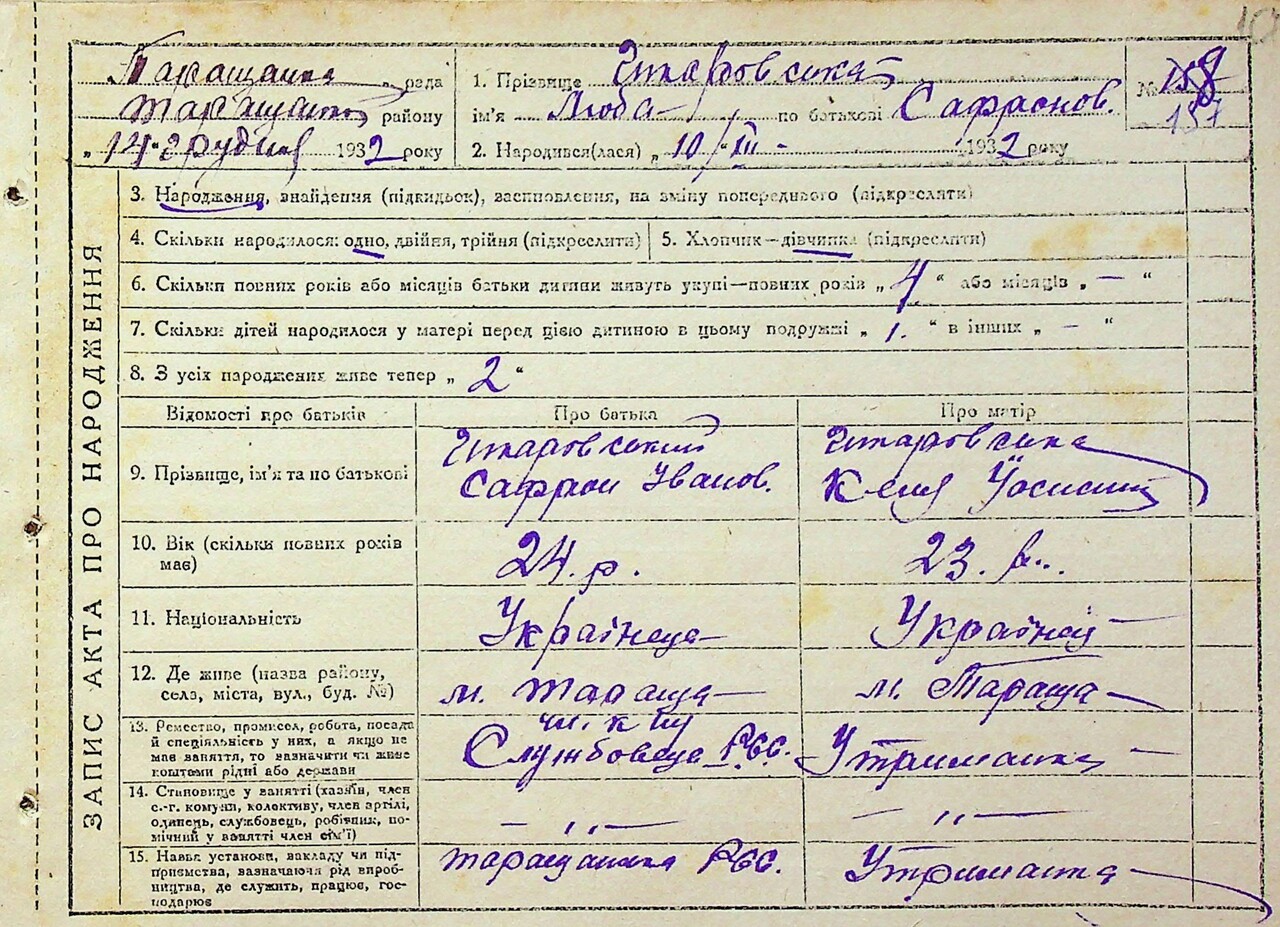 10
Таращанка рада
Таращанськ району
„14“ Грудня 1932 року
1. Прізвище
ім'я Люба по батькові Сафронов.
2. Народився(лася) „10/III - 1932 року
№ 158
157
ЗАПИС АКТА ПРО НАРОДЖЕННЯ
3. Народження, знайдення (підкидьок), засиновлення, на зміну попереднього (підкреслити)
4. Скільки народилося: одно, двійня, трійня (підкреслити)
5. Хлопчик—дівчинка (підкреслити)
6. Скільки повних років або місяців батьки дитини живуть укупі—повних років „4“ або місяців „—“
7. Скільки дітей народилося у матері перед цією дитиною в цьому подружжі „1.“ в інших „—“
8. З усіх народжених живе тепер „2“
Відомості про батьків
Про батька
Про матір
9. Прізвище, ім'я та по батькові
Сафрон Іванов.
10. Вік (скільки повних років
має)
24. р.
23. р.
11. Національність
Українець
Українка
12. Де живе (назва району,
села, міста, вул., буд. №)
м. Тараща
м. Тараща
13. Ремество, промисел, робота, посада
й спеціяльність у них, а якщо не
має заняття, то зазначити чи живе
коштами рідні або держави
Службовець РСС.
Утриманка
14. Становище у занятті (хазяїн, член
с.-г. комуни, колективу, член артілі,
одинець, службовець, робітник, по-
мічний у занятті член сім'ї)
— „ —
— „ —
15. Назва установи, закладу чи під-
приємства, зазначаючи рід вироб-
ництва, де служить, працює, гос-
подарює
Таращанка РСС.
Утриманка